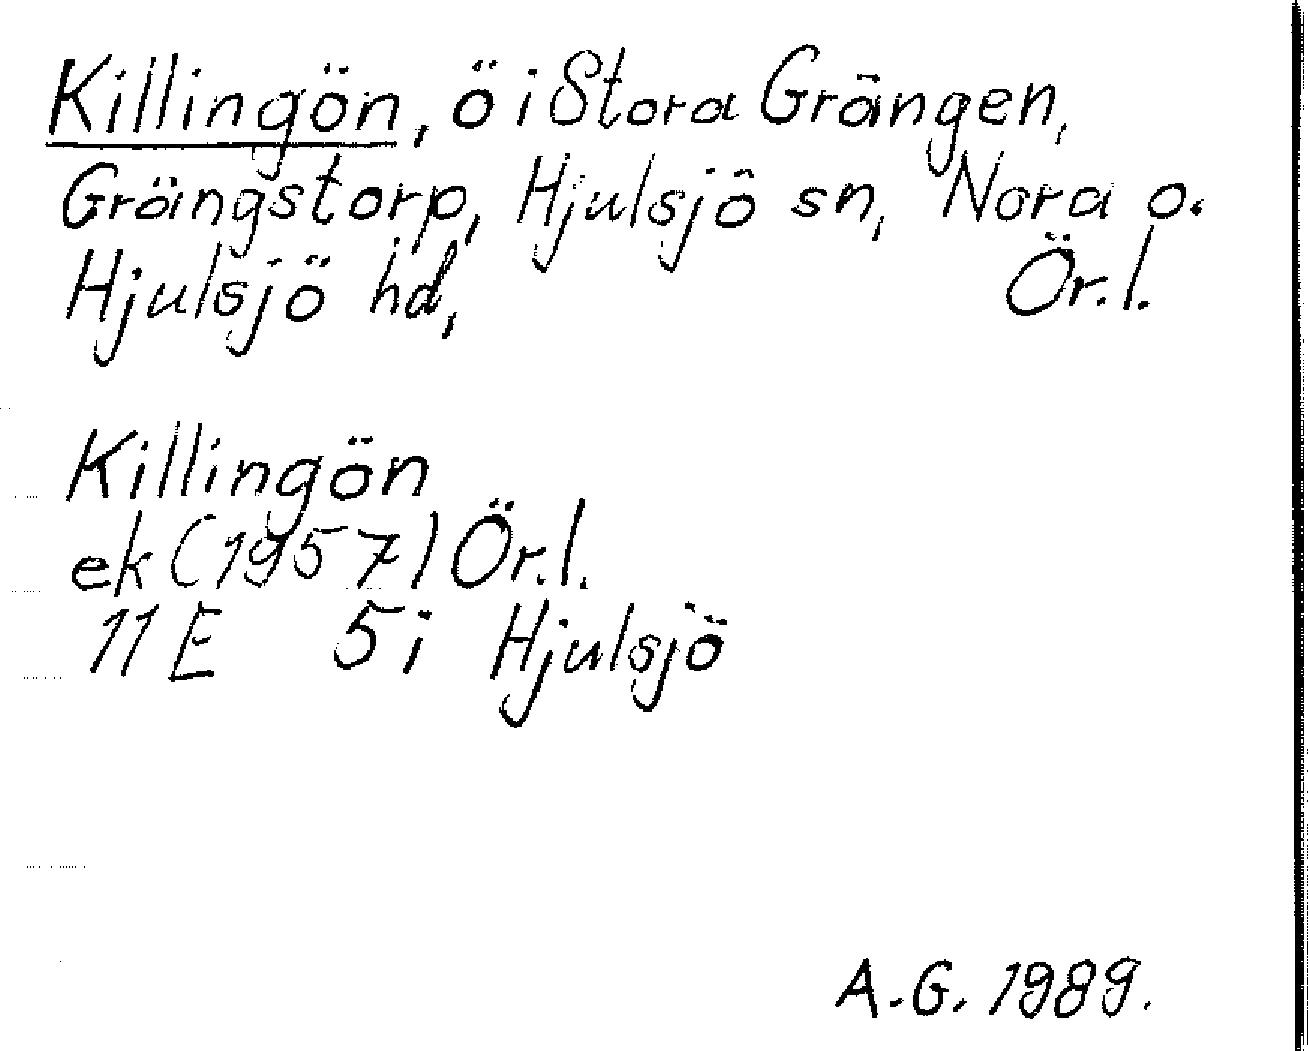 Killingön, ö i Stora Grängen,
Grängstorp, Hjulsjö sn, Nora o.
Hjulsjö hd, Ör.l.
Killingön
ek (1957) Ör.l.
11E 5i Hjulsjö
A.G. 1989.